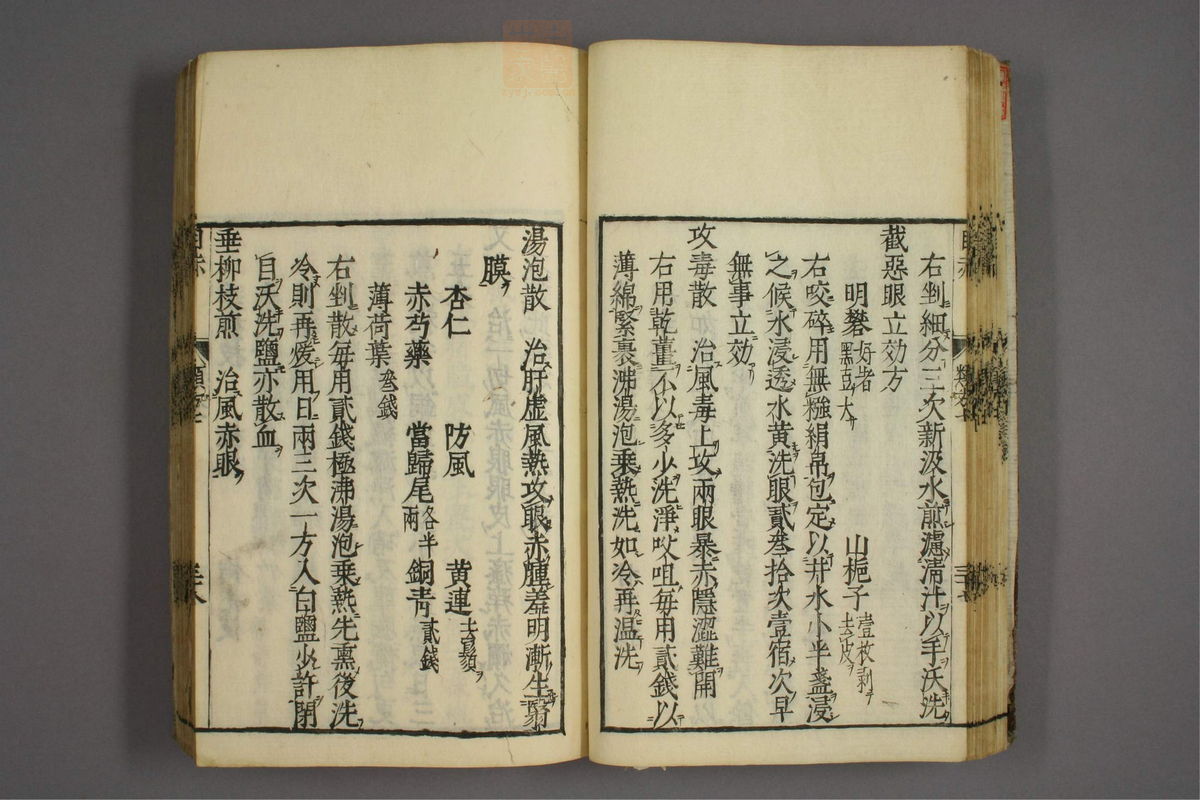 右剉細分三次新汲水煎濾淸汁以手沃洗
截惡眼立効方
明礬 好者黑豆大 山梔子 壹枚剥去皮
右咬碎用無糨絹帛包定以井水小半盞浸
之候水浸透水黃洗眼貳叁拾次壹宿次早
無事立効
攻毒散 治風毒上攻兩眼暴赤隱澀難開
右用乾薑不以多少洗淨㕮咀每用貳錢以
薄綿緊裹沸湯泡乗熱洗如冷再温洗
湯泡散 治肝虚風熱攻眼赤腫羞明漸生翳
膜
杏仁 防風 黃連 去鬚
赤芍藥 當歸尾 各半兩 銅青 貳錢
薄荷葉 叁錢
右剉散每用貳錢極沸湯泡乗熱先熏後洗
冷則再煖用日兩三次一方入白鹽少許閉
目沃洗鹽亦散血
垂柳枝煎 治風赤眼